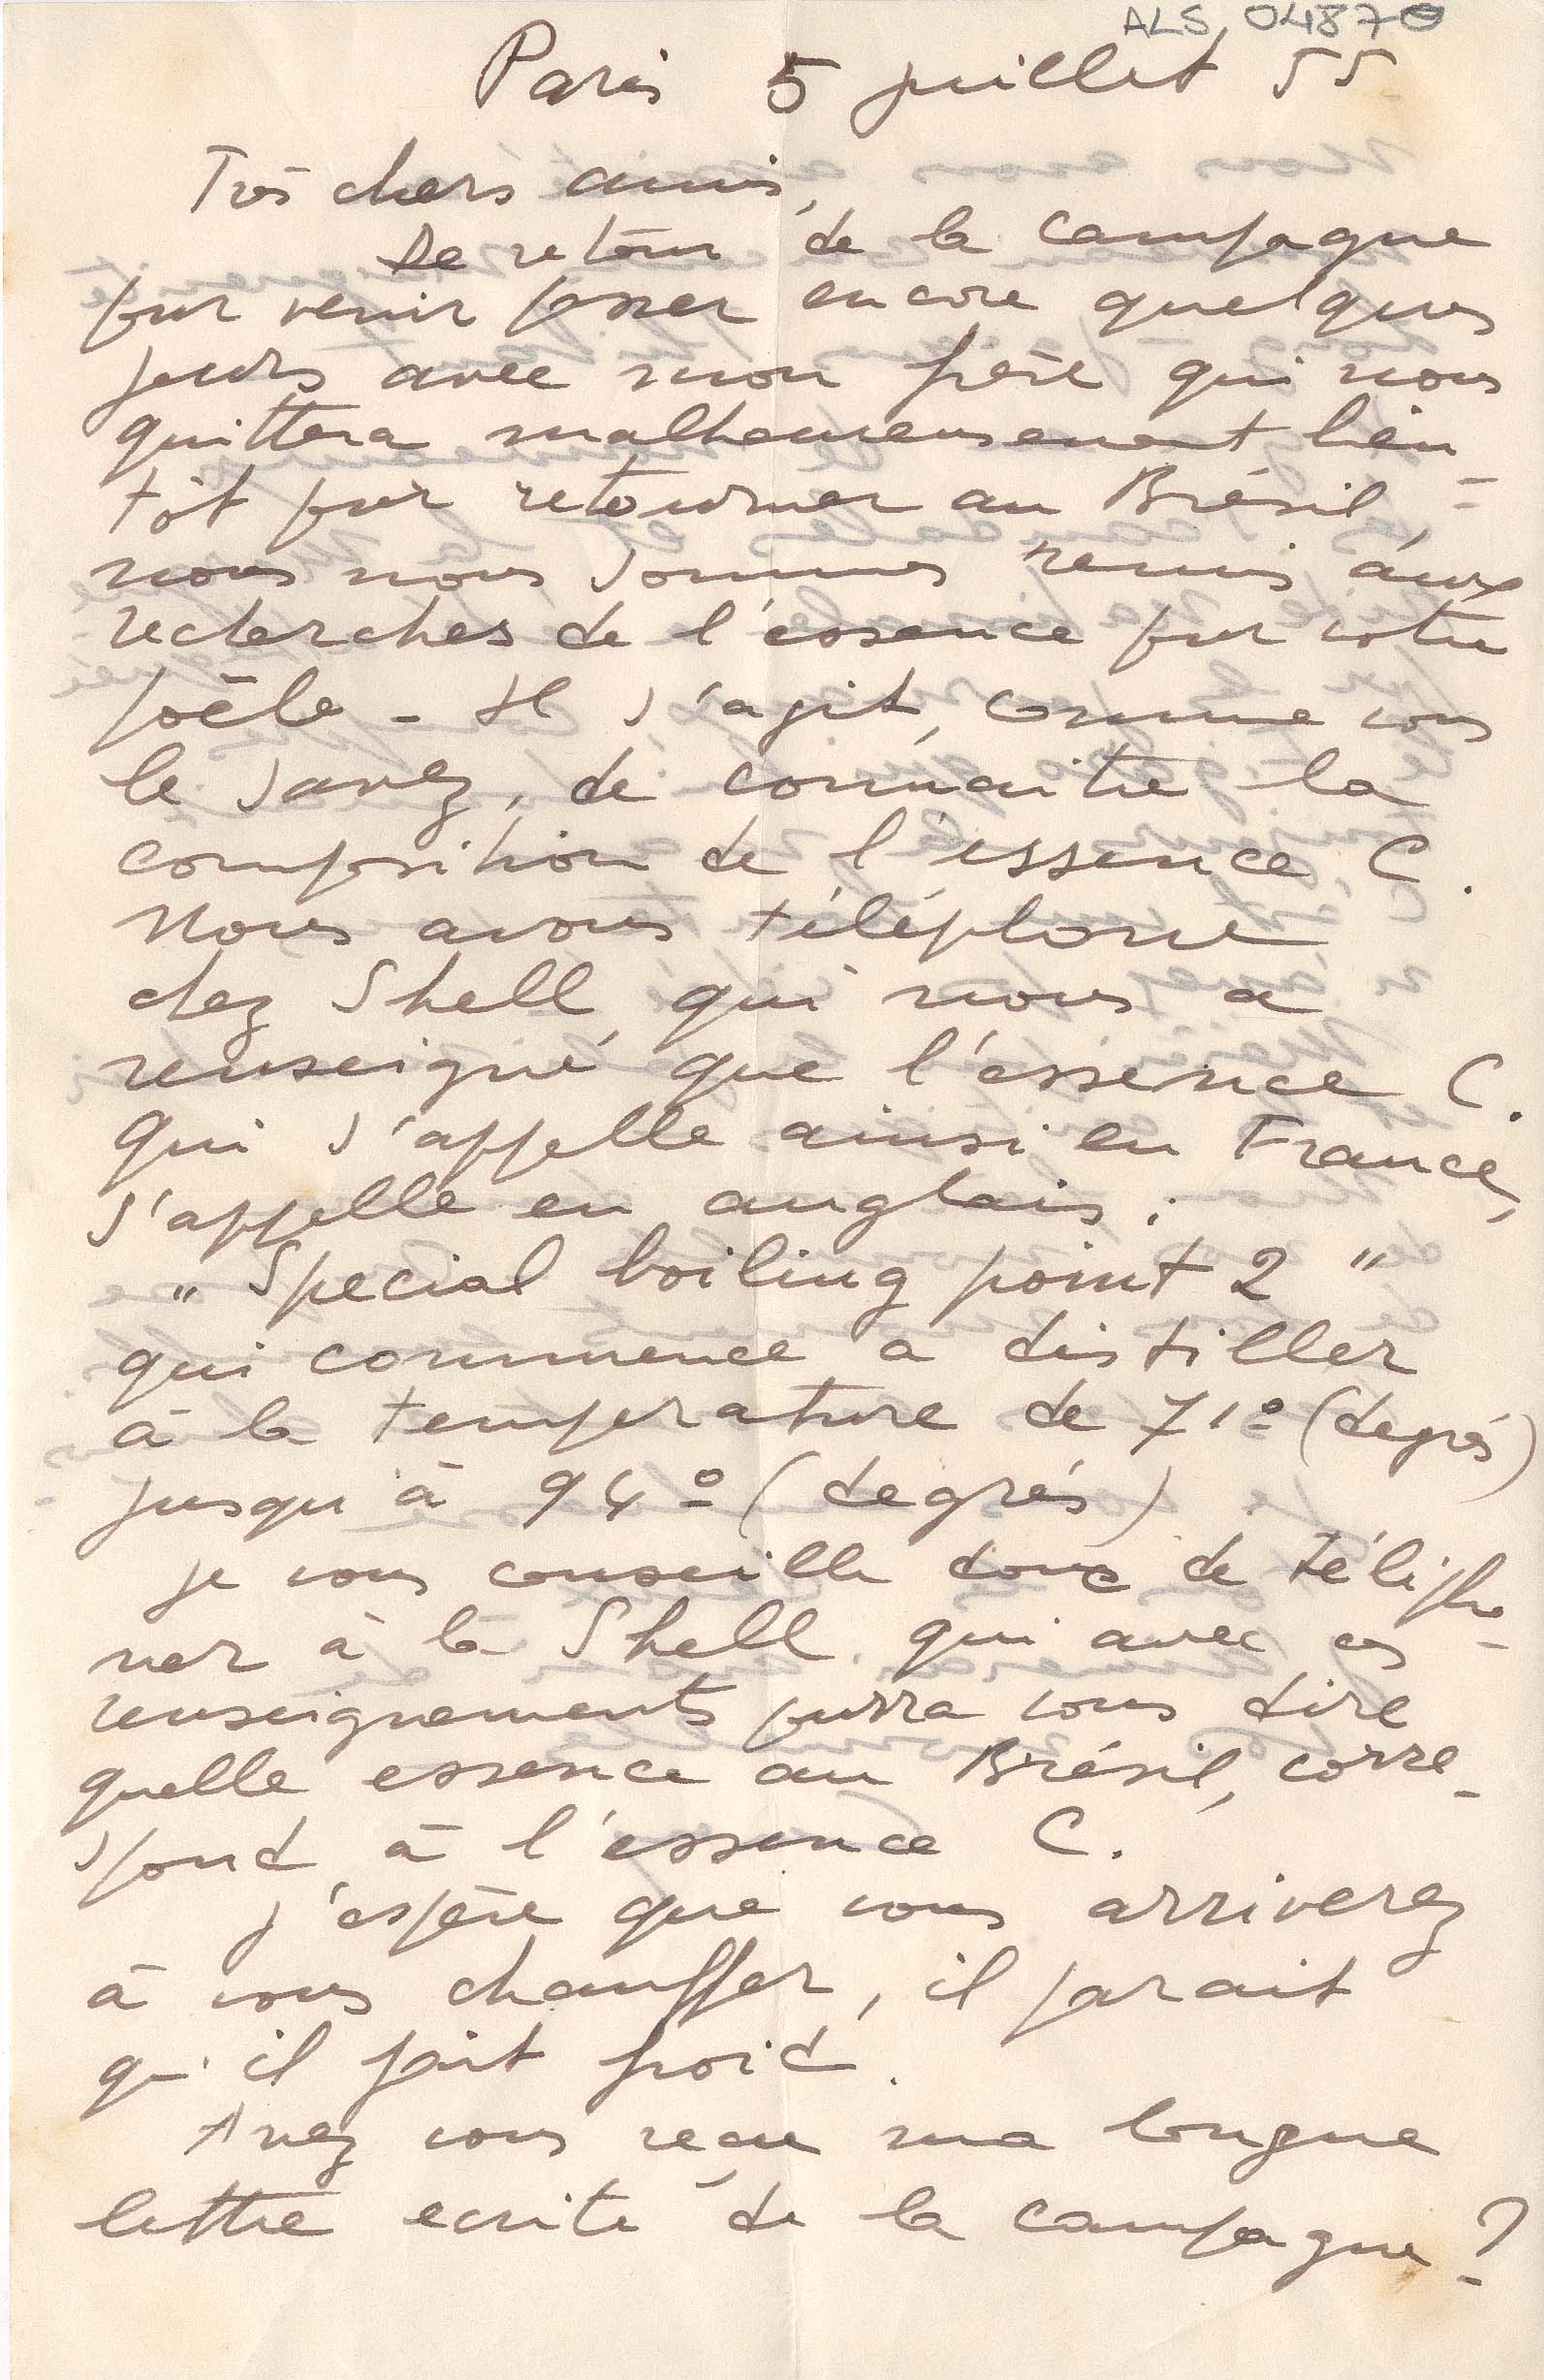 ALS 04870
Paris 5 juillet 55
Très chers amis,
De retour de la campagne
pour venir passer encore quelques
jours avec mon père qui nous
quittera malheureusement bien
tôt pour retourner au Brésil, -
nous nous sommes remis aux
recherches de l'essence pour votre
poêle - Il s'agit, comme vous
le savez, de connaitre la
composition de l'essence C.
Nous avons téléphone
chez Shell, qui nous a
renseigné que l'essence C.
qui s'appelle ainsi en France,
s'appelle en anglais :
" Special boiling point 2 "
qui commence a distiller
à la temperature de 71º (degrés)
jusqu'à 94º (degrés)
je vous conseille donc de télépho-
ner à la Shell qui avec ces
renseignements pourra vous dire
quelle essence au Brésil, corre-
spond à l'essence C.
J'espère que vous arriverez
à vous chauffer, il parait
qu'il fait froid.
Avez vous reçu ma longue
lettre ecrite de la campagne ? -